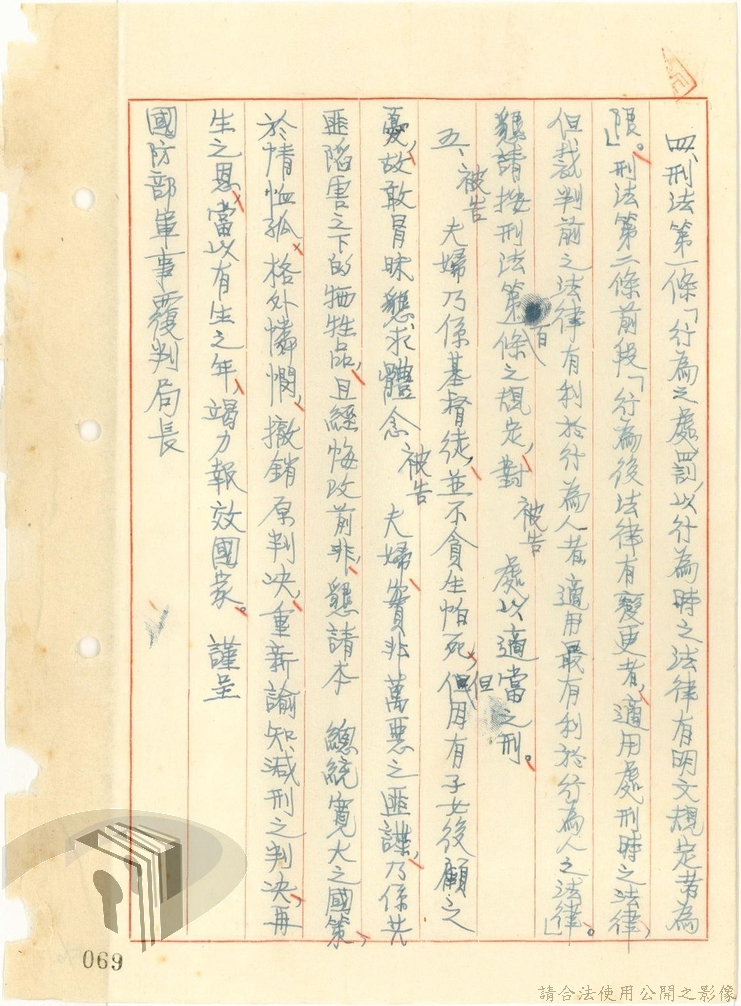 四、刑法第一條「行為之處罰以行為時之法律有明文規定者為
限。」刑法第二條前段「行為後法律有變更者，適用處刑時之法律，
但裁判前之法律有利於行為人者，適用最有利於行為人之法律。」
懇請按刑法第一百條之規定，對被告處以適當之刑。
五、被告夫婦乃係基督徒，並不貪生怕死，但因有子女後顧之
憂，故敢冒昧懇求體念被告夫婦，實非萬惡之匪諜，乃係共
匪陷害之下的犧牲品，且經悔改前非，懇請本 總統寬大之國策，
於情恤孤，格外憐憫，撤銷原判决，重新諭知減刑之判决，再
生之恩，當以有生之年，竭力報效國家。 謹呈
國防部軍事覆判局長
069
請合法使用公開之影像